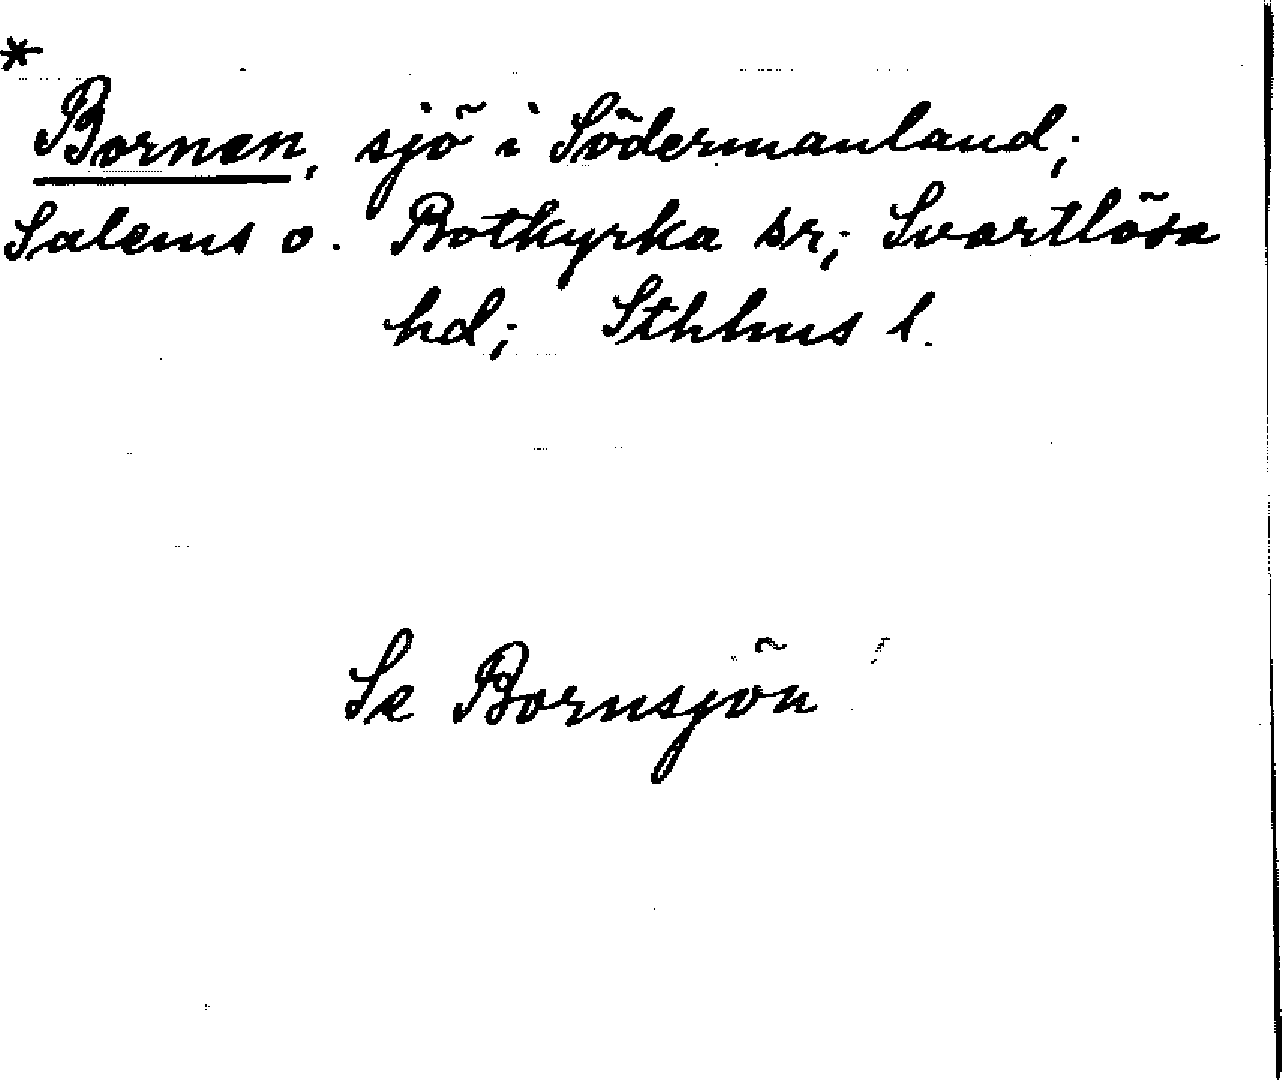 *
Bornen, sjö i Södermanland;
Salems o. Botkyrka sr; Svartlösa
hd; Sthhus l.
Se Bornsjön